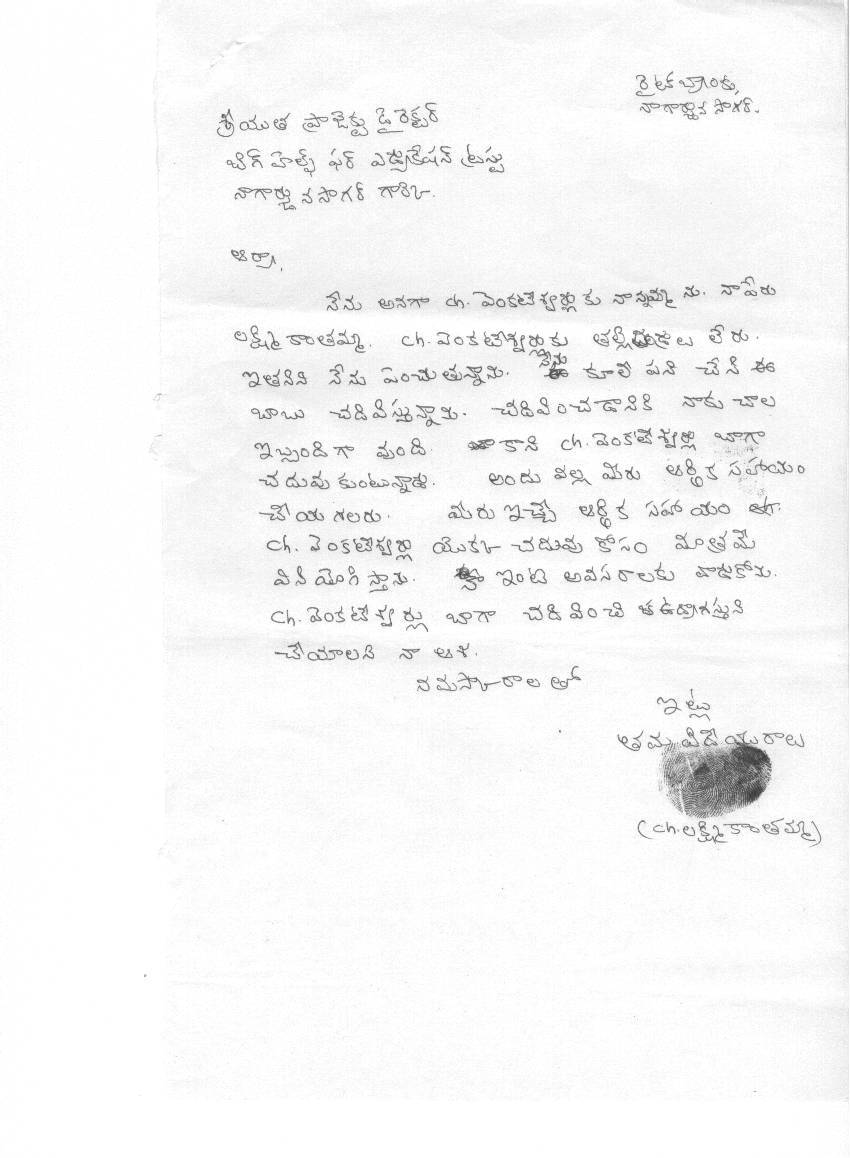 రైట్ బ్యాంకు,
నాగార్జున సాగర్.
శ్రీయుత ప్రాజెక్టు డైరెక్టర్
బిగ్ హెల్ప్ ఫర్ ఎడ్యుకేషన్ ట్రస్టు
నాగార్జునసాగర్ గారికి.
ఆర్యా,
నేను అనగా ch. వెంకటేశ్వర్లుకు నాన్నమ్మను. నాపేరు
లక్ష్మీకాంతమ్మ. ch. వెంకటేశ్వర్లుకు తల్లిదండ్రులు లేరు.
ఇతనిని నేను పెంచుతున్నాను. నేను కూలి పని చేసి ఈ
బాబు చదివిస్తున్నాను. చదివించడానికి నాకు చాల
ఇబ్బందిగా వుంది. కాని ch. వెంకటేశ్వర్లు బాగా
చదువుకుంటున్నాడు. అందు వల్ల మీరు ఆర్థిక సహాయం
చేయగలరు. మీరు ఇచ్చే ఆర్థిక సహాయం
ch. వెంకటేశ్వర్లు యొక్క చదువు కోసం మాత్రమే
వినియోగిస్తాను. ఇంటి అవసరాలకు వాడుకోను.
ch. వెంకటేశ్వర్లు బాగా చదివించి
చేయాలని నా ఆశ.
నమస్కారాలతో
ఇట్లు
తమ విధేయురాలు
(ch. లక్ష్మీకాంతమ్మ)